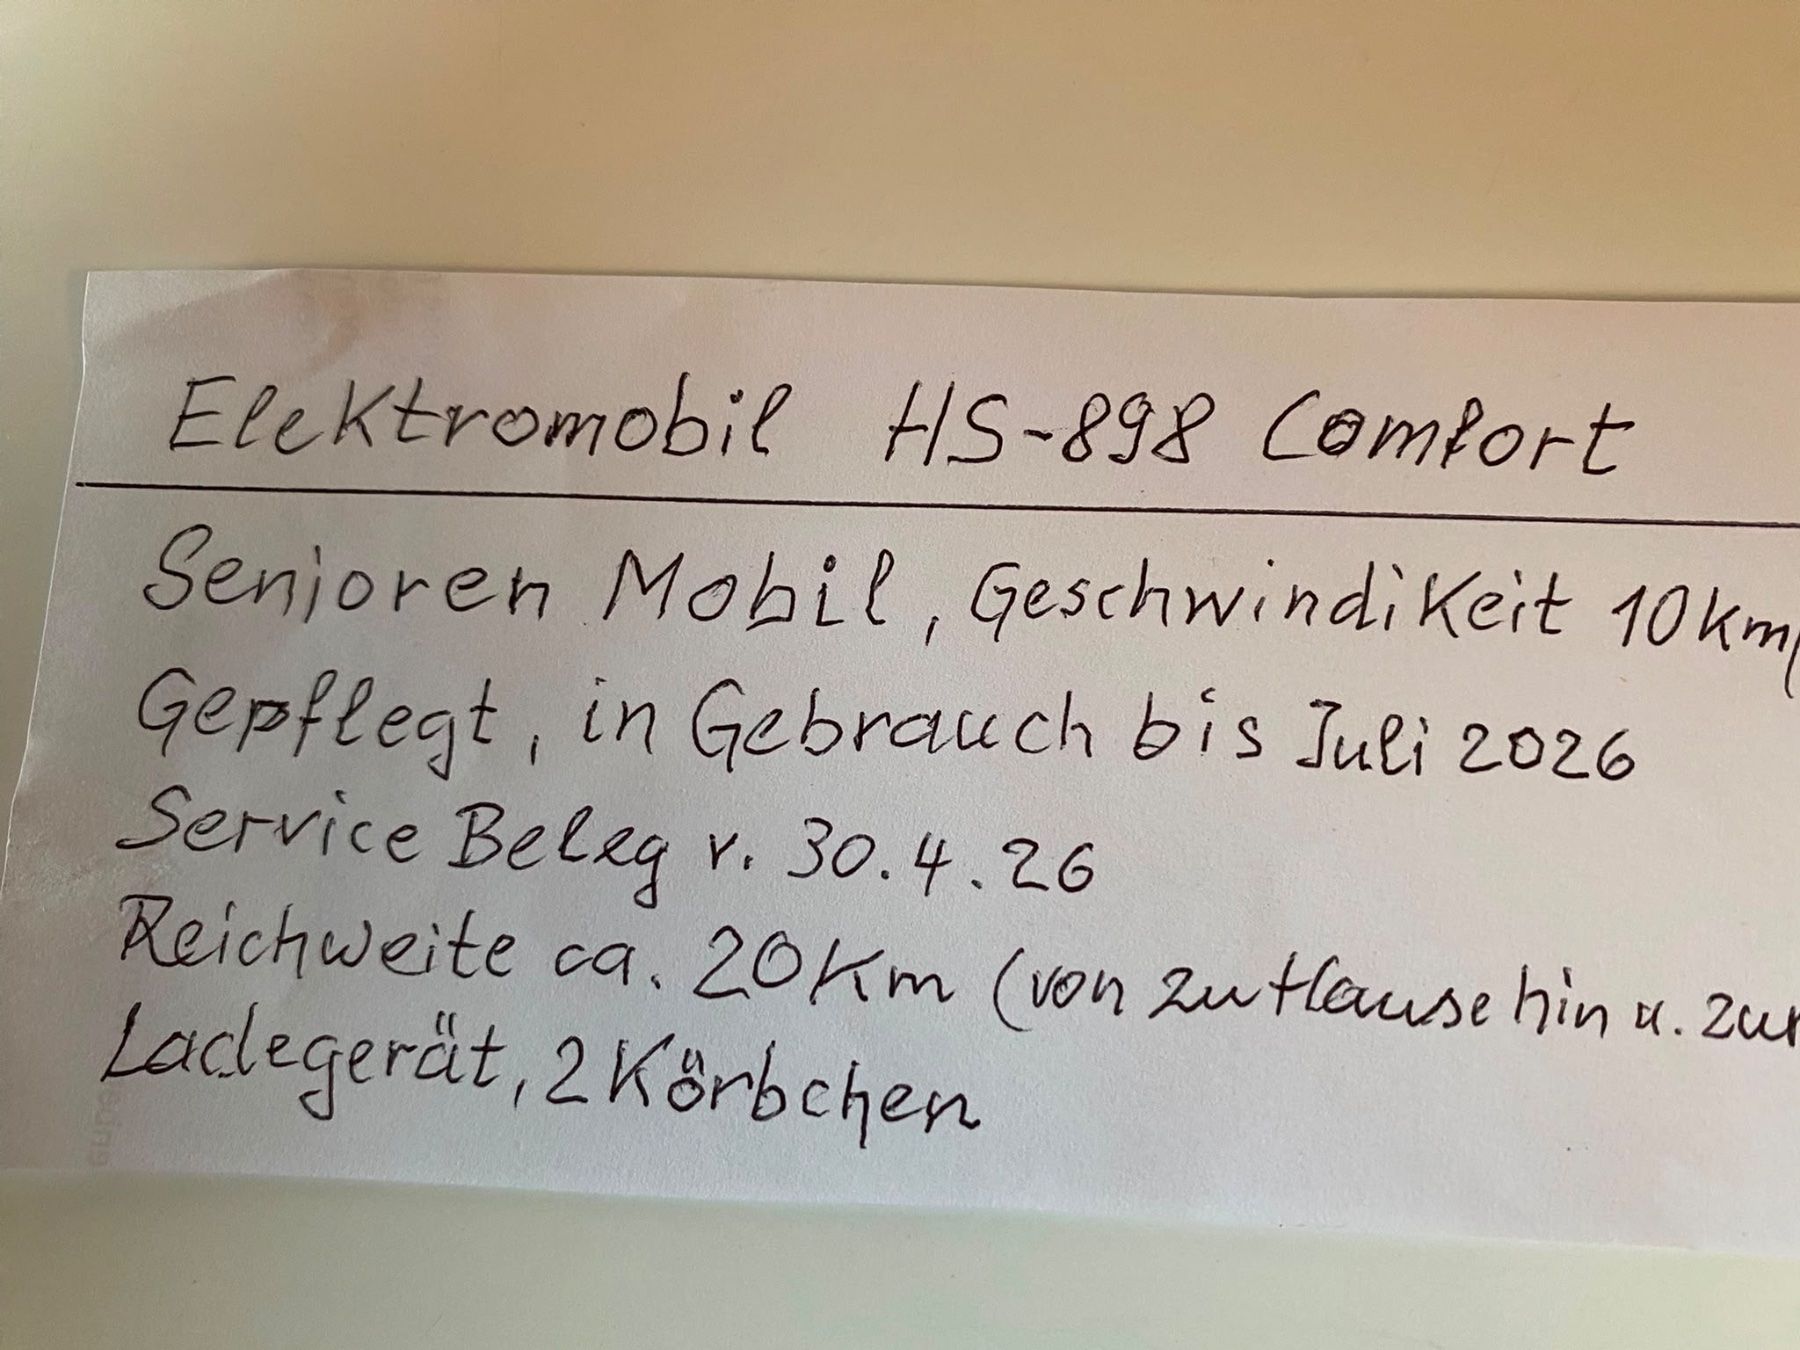 Elektromobil HS-898 Comfort
Senioren Mobil, Geschwindikeit 10km/
Gepflegt, in Gebrauch bis Juli 2026
Service Beleg v. 30.4.26
Reichweite ca. 20Km (von zu Hause hin u. zur
Ladegerät, 2 Körbchen